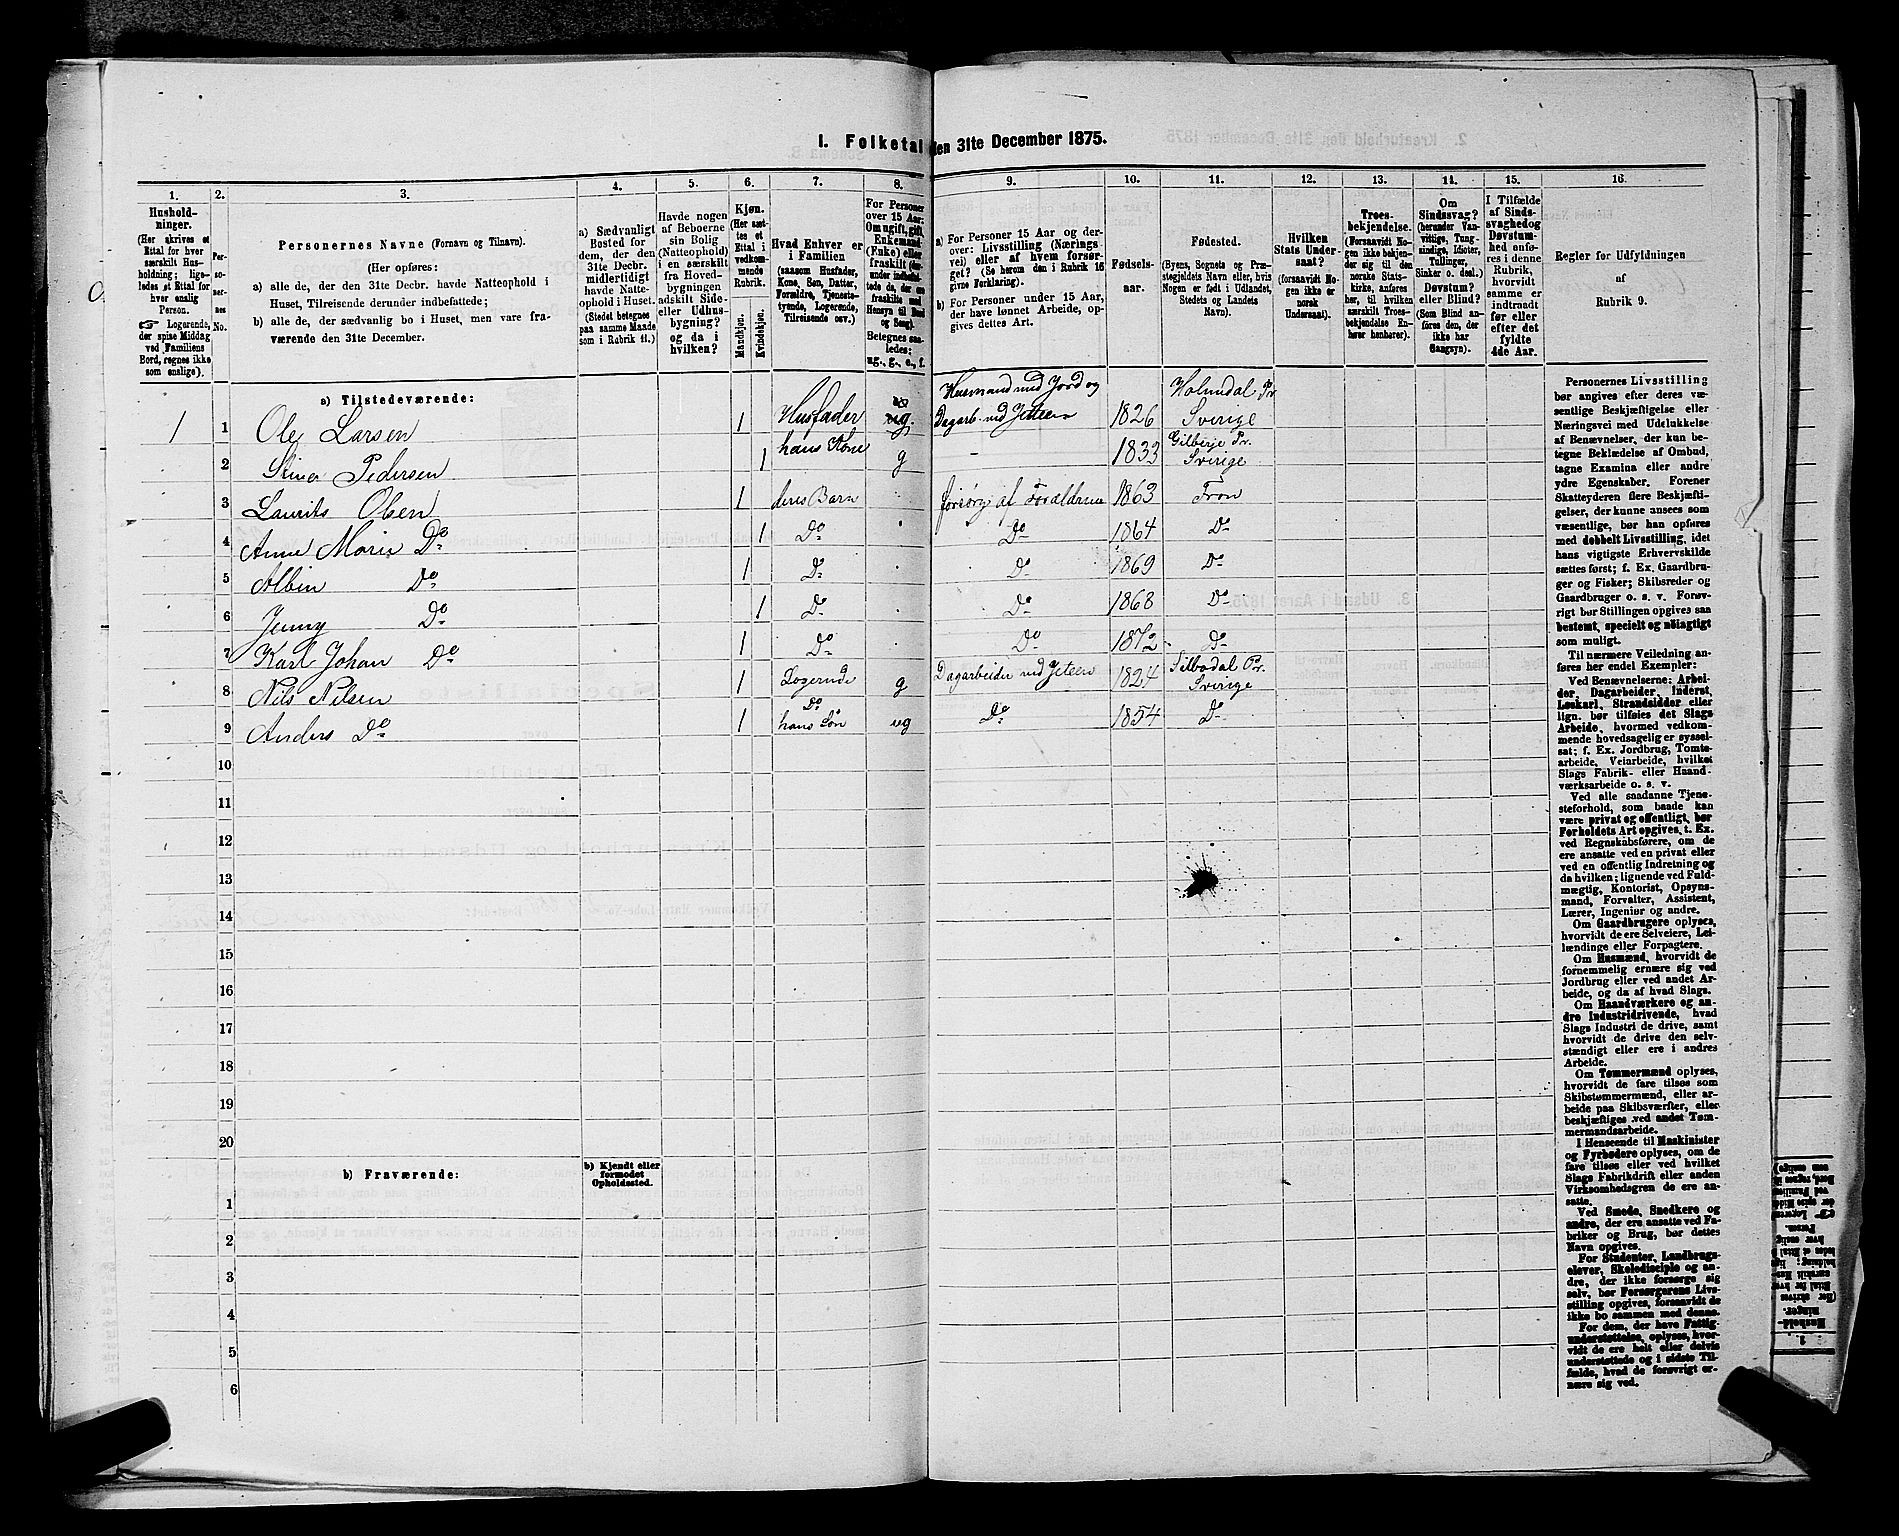 I. Folketal den 31te December 1875.
1. 2. 3. 4. 5. 6. 7. 8. 9. 10. 11. 12. 13. 14. 15. 16.
Hushold-
ninger.
(Her skrives et
Ettal for hver
særskilt Hus-
holdning; lige-
ledes et Ettal for
hver enslig
Person.
Logerende,
der spise Middag
ved Familiens
Bord, regnes ikke
som enslige).
Per-
so-
ner-
nes
No.
Personernes Navne (Fornavn og Tilnavn).
(Her opføres:
a) alle de, der den 31te Decbr. havde Natteophold i
Huset, Tilreisende derunder indbefattede;
b) alle de, der sædvanlig bo i Huset, men vare fra-
værende den 31te December.
a) Sædvanligt
Bosted for
dem, der den
31te Decbr.
midlertidigt
havde Natte-
ophold i Huset.
(Stedet betegnes
paa samme Maade
som i Rubrik 11.)
Havde nogen
af Beboerne
sin Bolig
(Natteophold)
i en særskilt
fra Hoved-
bygningen
adskilt Side-
eller Udhus-
bygning?
og da i
hvilken?
Kjøn.
(Her sæt-
tes et
Ettal i
vedkom-
mende
Rubrik.
Mandkjøn.
Kvindekjøn.
Hvad Enhver er
i Familien
(saasom Husfader,
Kone, Søn, Datter,
Forældre, Tjeneste-
tyende, Logerende,
Tilreisende osv.)
For Personer
over 15 Aar:
Om ugift, gift,
Enkemand
(Enke) eller
fraskilt (der-
under indbefat-
tede de, der ere
fraskilte med
Hensyn til Bord
og Seng).
Betegnes saa-
ledes:
ug., g., e., f.
a) For Personer 15 Aar og der-
over: Livsstilling (Nærings-
vei) eller af hvem forsør-
get? (Se herom den i Rubrik 16
givne Forklaring).
b) For Personer under 15 Aar,
der have lønnet Arbeide, op-
gives dettes Art.
Fødsels-
aar.
Fødested.
(Byens, Sognets og Præ-
stegjeldets Navn eller, hvis
Nogen er født i Udlandet,
Stedets og Landets
Navn).
Hvilken
Stats Under-
saat?
(forsaavidt No-
gen ikke er
norsk
Undersaat).
Troes-
bekjendelse.
(Forsaavidt No-
gen ikke bekjen-
der sig til den
norske Stats-
kirke, anføres
her, til hvilken
særskilt Troes-
bekjendelse En-
hver henhører).
Om
Sindssvag?
(herunder Van-
vittige, Tung-
sindige, Idioter,
Tullinger,
Sinker o. desl.)
Døvstum?
eller Blind?
(Som Blind an-
føres den, der
ikke har
Gangsyn).
I Tilfælde
af Sinds-
svaghed og
Døvstum-
hed anfø-
res i denne
Rubrik,
hvorvidt
samme er
indtraadt
før eller
efter det
fyldte
4de Aar.
Regler for Udfyldningen
af
Rubrik 9.
a) Tilstedeværende:
1 1 Ole Larsen 1 Husfader g. Husmand med Jord og Dagarb. ved 1826 Holmdal Pr. Sverige
2 Stina Pedersen 1 hans Kone g - 1833 Gilberje Pr. Sverige
3 Laurits Olsen 1 deres Barn forsørg af Forældrene 1863 Tron
4 Anne Marie Do 1 Do Do 1864 Do
5 Albin Do 1 Do Do 1869 Do
6 Jenny Do 1 Do Do 1868 Do
7 Karl Johan Do 1 Do Do 1872 Do
8 Nils Nilsen 1 Logerende g Dagarbeider ved 1824 Silbodal Pr. Sverige
9 Anders Do 1 Do hans Søn ug Do 1854 Do
10
11
12
13
14
15
16
17
18
19
20
b) Fraværende:
b) Kjendt eller
formodet
Opholdssted.
1
2
3
4
5
6
Personernes Livsstilling
bør angives efter deres væ-
sentlige Beskjæftigelse eller
Næringsvei med Udelukkelse
af Benævnelser, der kun be-
tegne Beklædelse af Ombud,
tagne Examina eller andre
ydre Egenskaber. Forener
Skatteyderen flere Beskjæfti-
gelser, der kunne ansees som
væsentlige, bør han opføres
med dobbelt Livsstilling, idet
hans vigtigste Erhvervskilde
sættes først; f. Ex. Gaardbru-
ger og Fisker; Skibsreder og
Gaardbruger o. s. v. Forøv-
rigt bør Stillingen opgives saa
bestemt, specielt og nøiagtigt
som muligt.
Til nærmere Veiledning an-
føres her endel Exempler:
Ved Benævnelserne: Arbei-
der, Dagarbeider, Inderst,
Løskarl, Strandsidder eller
lign. bør tilføies det Slags
Arbeide, hvormed vedkom-
mende hovedsagelig er syssel-
sat; f. Ex. Jordbrug, Tomte-
arbeide, Veiarbeide, hvilket
Slags Fabrik- eller Haand-
værksarbeide o. s. v.
Ved alle saadanne Tjene-
steforhold, som baade kan
være privat og offentligt, bør
Forholdets Art opgives, t. Ex.
ved Regnskabsførere, om de
ere ansatte ved en privat eller
ved en offentlig Indretning og
da hvilken; lignende ved Fuld-
mægtig, Kontorist, Opsyns-
mand, Forvalter, Assistent,
Lærer, Ingeniør og andre.
Om Gaardbrugere oplyses,
hvorvidt de ere Selveiere, Lei-
lændinge eller Forpagtere.
Om Husmænd, hvorvidt de
fornemmelig ernære sig ved
Jordbrug eller ved andet Ar-
beide, og da af hvad Slags.
Om Haandværkere og an-
dre Industridrivende, hvad
Slags Industri de drive, samt
hvorvidt de drive den selv-
stændigt eller ere i andres
Arbeide.
Om Tømmermænd oplyses,
hvorvidt de fare tilsøs som
Skibstømmermænd, eller ar-
beide paa Skibsværfter, eller
beskjæftiges ved andet Tøm-
mermandsarbeide.
I Henseende til Maskinister
og Fyrbødere oplyses, om de
fare tilsøs eller ved hvilket
Slags Fabrikdrift eller anden
Virksomhedsgren de ere an-
satte.
Ved Smede, Snedkere og
andre, der ere ansatte ved Fa-
briker og Brug, bør dettes
Navn opgives.
For Studenter, Landbrugs-
elever, Skoledisciple og an-
dre, der ikke forsørge sig
selv, bør Forsørgerens Livs-
stilling opgives, forsaavidt de
ikke bo sammen med denne.
For dem, der have Fattig-
understøttelse, oplyses, hvor-
vidt de ere helt eller delvis
understøttede og i sidste Til-
fælde, hvad de forøvrigt er-
nære sig ved.